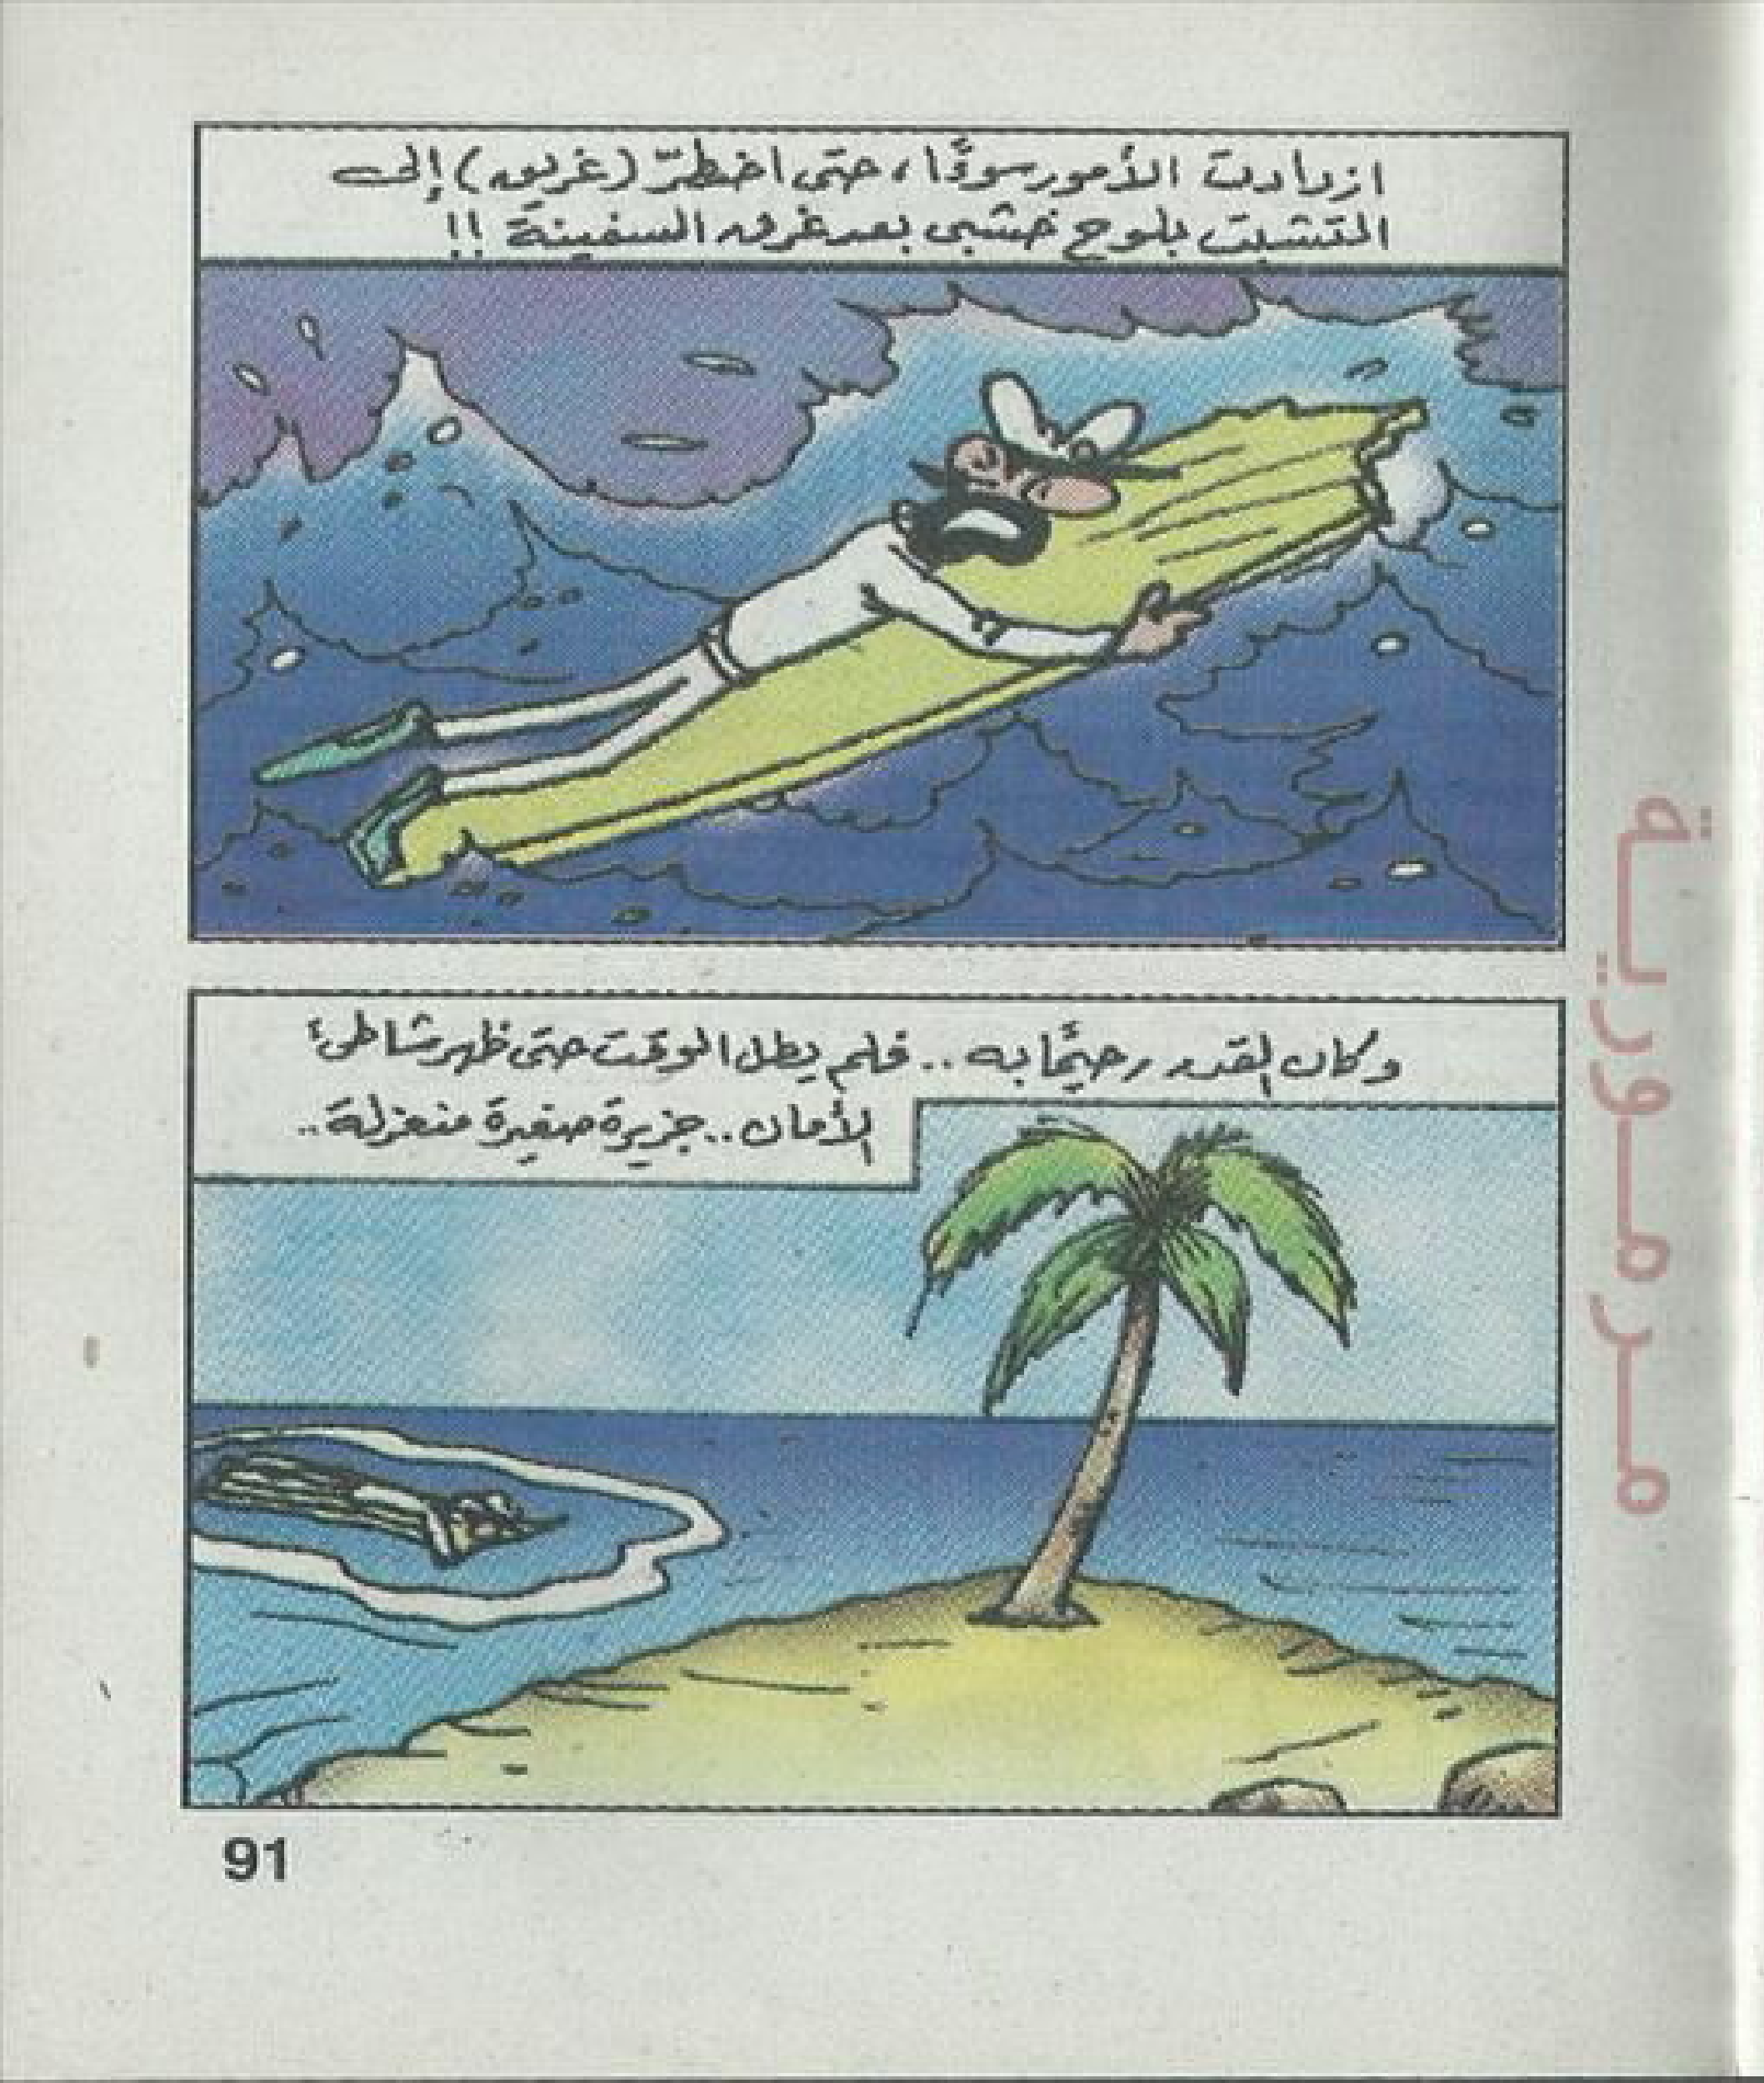 ازدادت الأمور سوءًا، حتى اضطرّ (غريق) إلى
التشبث بلوح خشبى بعد غرق السفينة !!
وكان القدر رحيمًا به .. فلم يطل الوقت حتى ظهر شاطئ
الأمان .. جزيرة صغيرة منعزلة ..
91
مرمورية